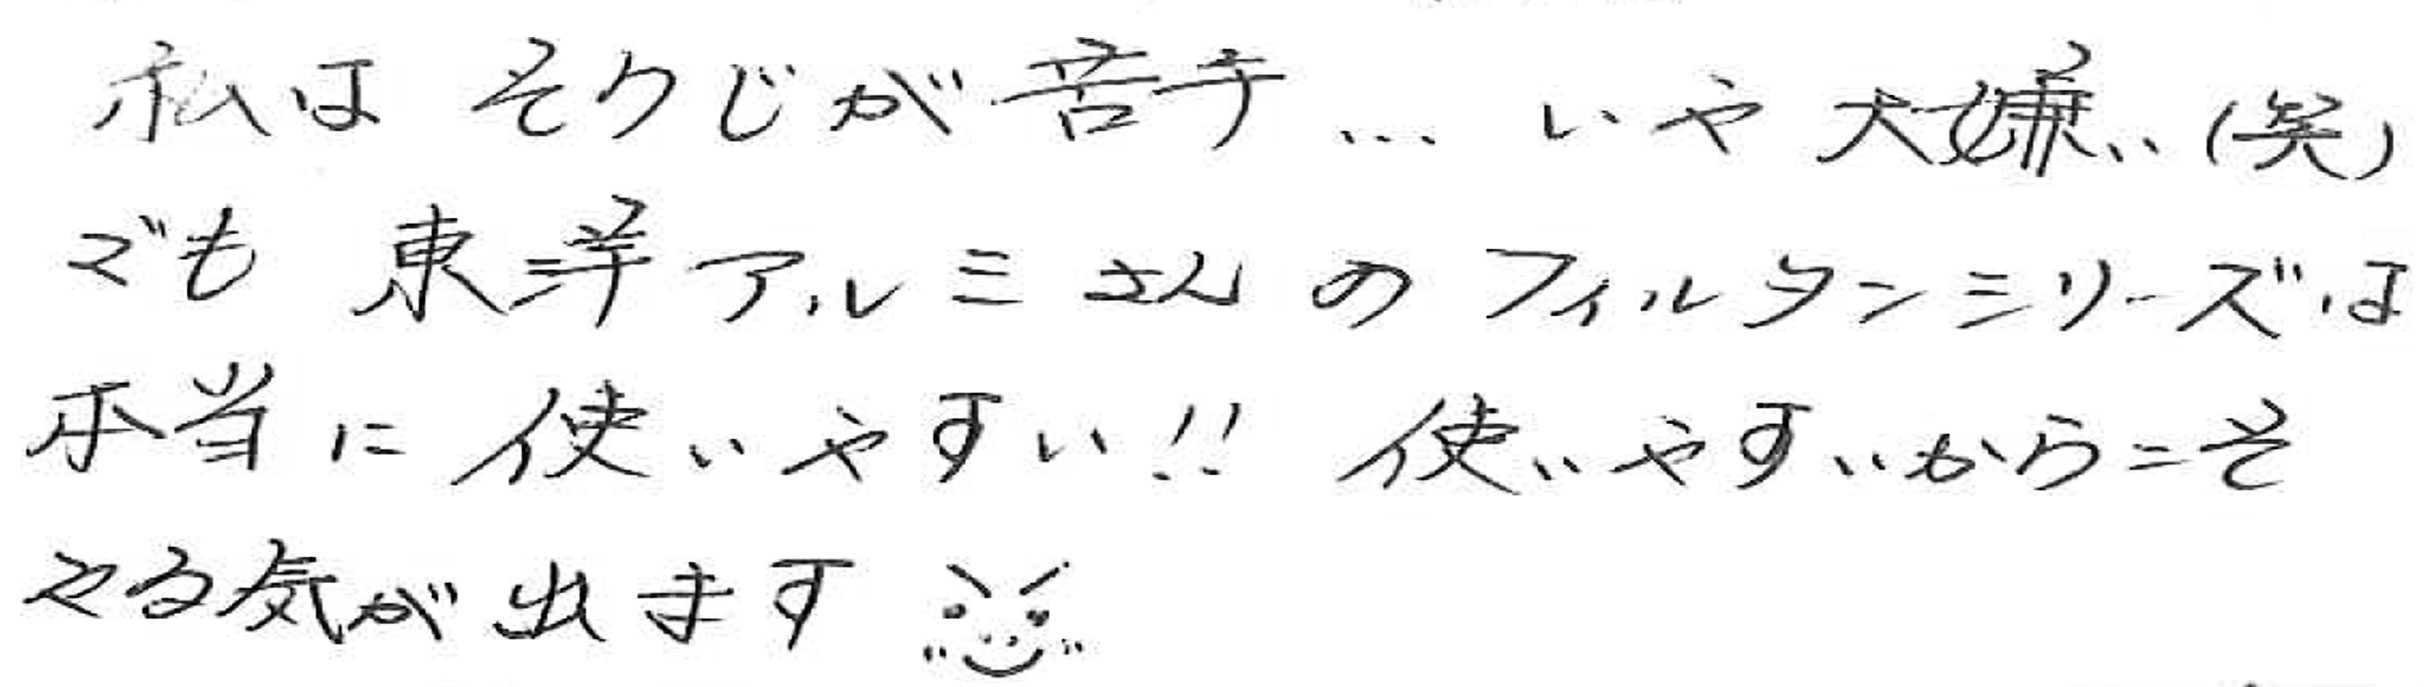 私は そうじが苦手… いや 大嫌い(笑)
でも 東洋アルミさんの フィルタンシリーズは
本当に 使いやすい!! 使いやすいからこそ
やる気が出ます